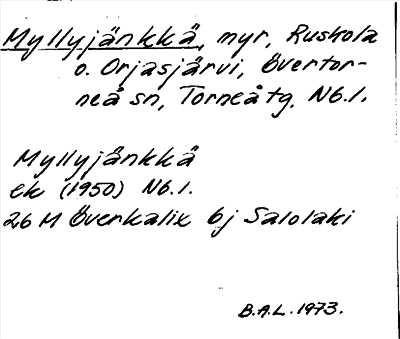 Myllyjänkkä, myr, Ruskola
o. Orjasjärvi, Övertor-
neå sn, Torneåtg. Nb.l.
Myllyjänkkä
ek (1950) Nb.l.
26 M Överkalix 6j Salolaki
B.A.L. 1973.